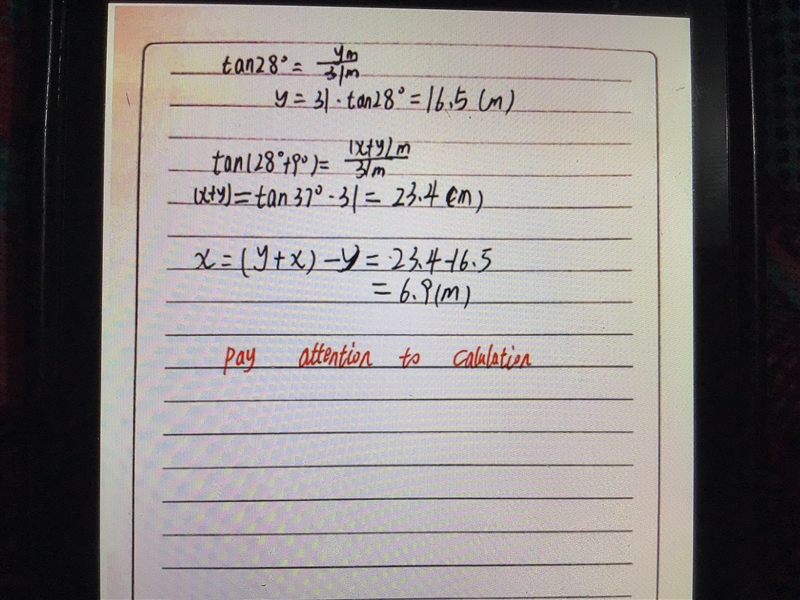 tan28° = ym/31m
y = 31 · tan28° = 16.5 (m)
tan(28°+9°) = (x+y)m/31m
(x+y) = tan37° · 31 = 23.4 (m)
x = (y+x) - y = 23.4-16.5
= 6.9 (m)
pay attention to calulation